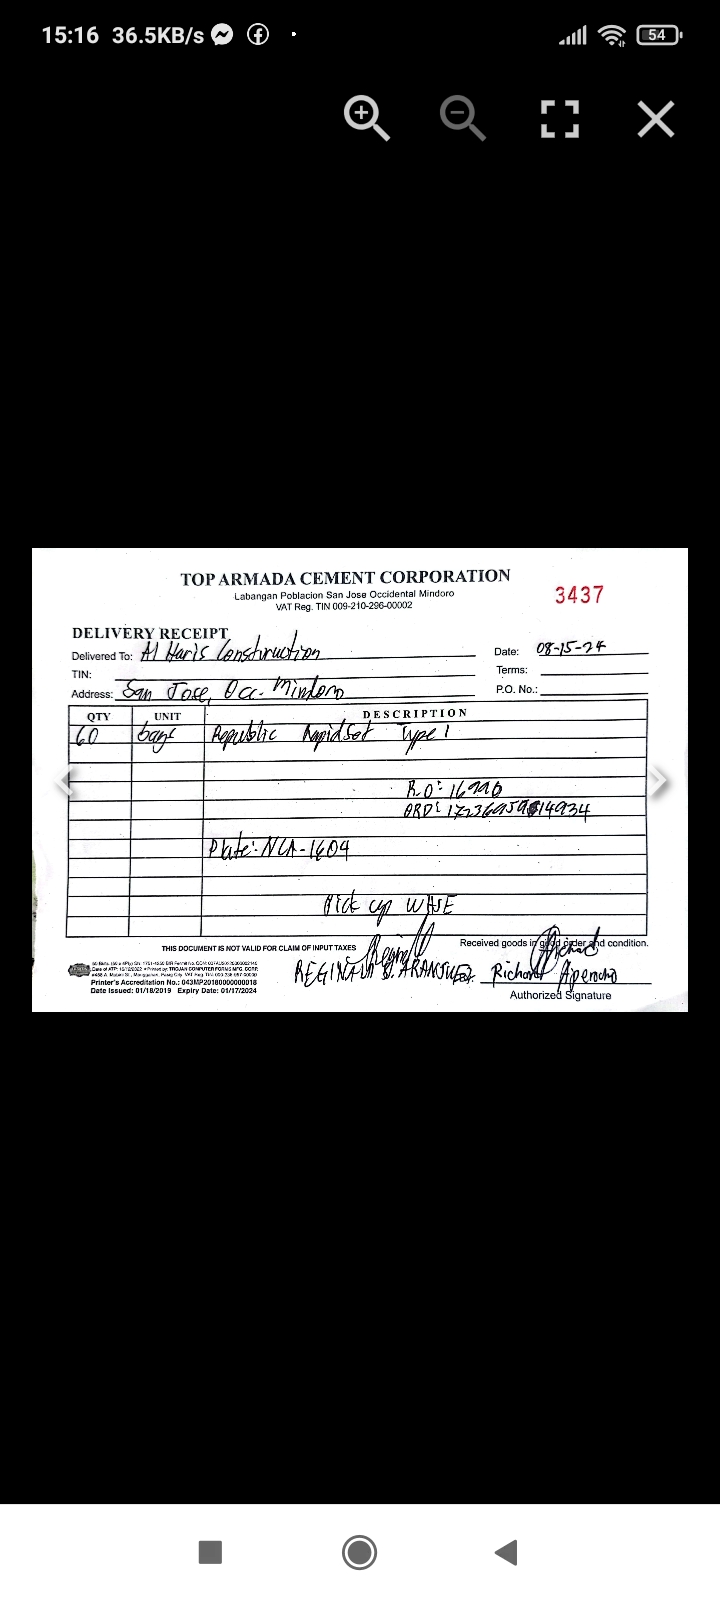 15:16 36.5KB/s
54
TOP ARMADA CEMENT CORPORATION
Labangan Poblacion San Jose Occidental Mindoro
VAT Reg. TIN 009-210-296-00002
3437
DELIVERY RECEIPT
Delivered To: Al Haris Construction
Date: 08-15-24
TIN:
Terms:
Address: San Jose, Occ. Mindoro
P.O. No.:
QTY UNIT DESCRIPTION
60 bags Republic Rapidset Type 1
R.O:
ORD:
Plate: NCA-1604
Pick up WHSE
THIS DOCUMENT IS NOT VALID FOR CLAIM OF INPUT TAXES
Received goods in good order and condition.
REGINALD B.
Richard
Printer's Accreditation No.: 043MP20180000000018
Date Issued: 01/18/2019 Expiry Date: 01/17/2024
Authorized Signature